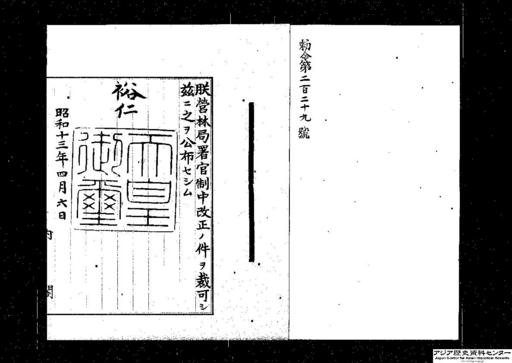 勅令第二百二十九號
朕營林局署官制中改正ノ件ヲ裁可シ
茲ニ之ヲ公布セシム
裕仁
天皇
御璽
昭和十三年四月六日
内閣
アジア歴史資料センター
Japan Center for Asian Historical Records